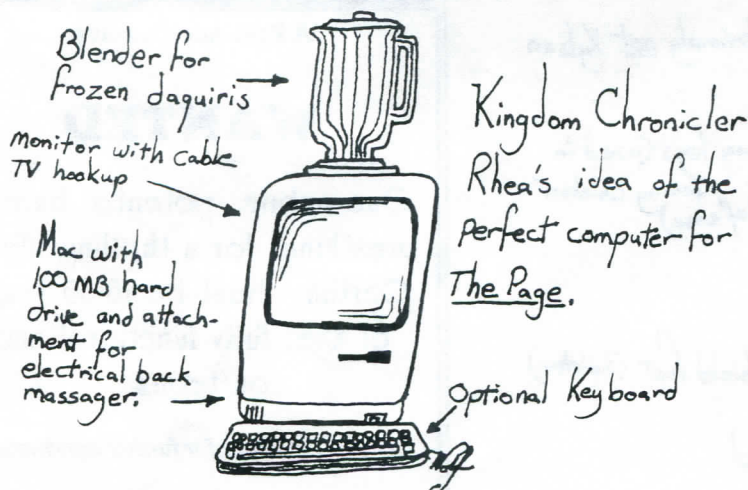 Blender for
frozen daquiris
monitor with cable
TV hookup
Mac with
100 MB hard
drive and attach-
ment for
electrical back
massager.
Kingdom Chronicler
Rhea's idea of the
perfect computer for
The Page.
Optional Keyboard